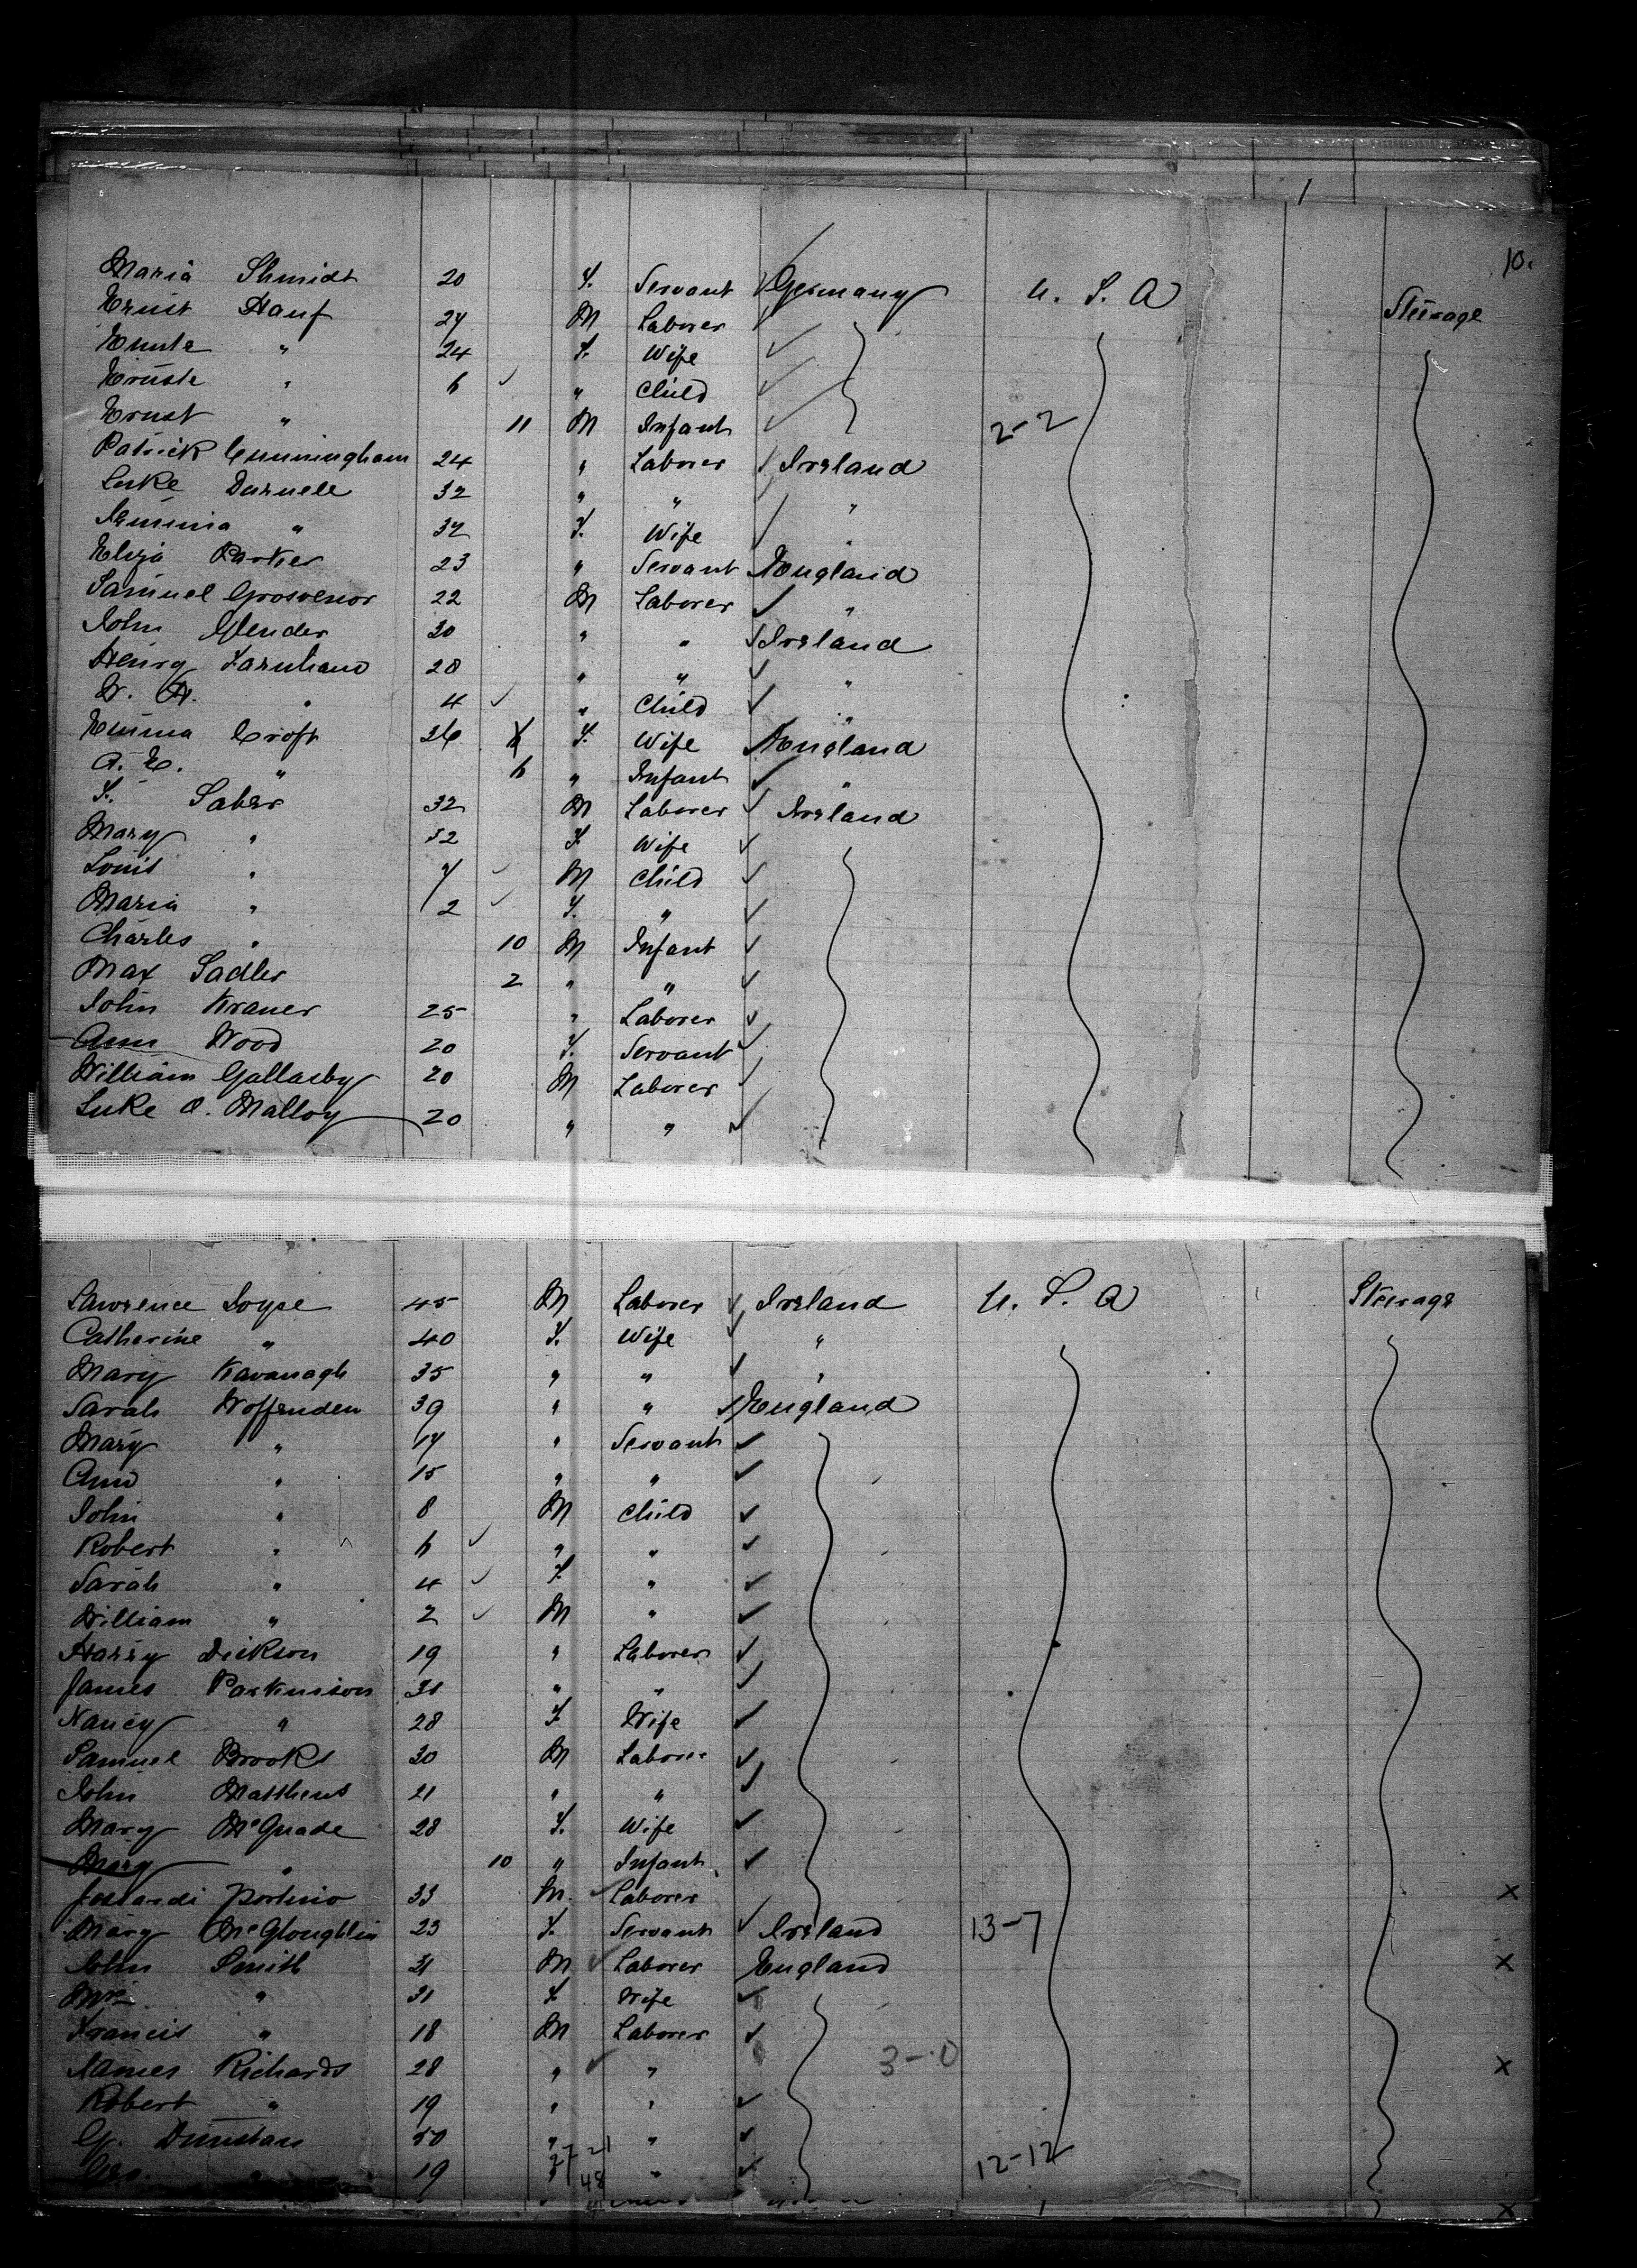 10.
Maria Shmidt 20 F. Servant Germany U. S. A Steerage
Ernst Hauf 27 M Laborer
" 24 F. Wife
" 6 " Child
Ernst " 11 M Infant 2-2
Patrick Cunningham 24 " Laborer Ireland
Luke 32 " " "
" 32 F. Wife "
Eliza Parker 23 " Servant England
Samuel Grosvenor 22 M Laborer "
John 30 " " Ireland
Henry Farnham 28 " " "
W. H. " 4 " Child "
Emma Croft 26 F. Wife England
A. E. " 6 " Infant "
F. Saber 32 M Laborer Ireland
Mary " 32 F. Wife
Louis " 7 M Child
Maria " 2 F. "
Charles " 10 M Infant
Max Sadler 2 " "
John Kraner 25 " Laborer
Ann Wood 20 F. Servant
William Gallasby 20 M Laborer
Luke O. Malloy 20 " "
Lawrence Joyse 45 M Laborer Ireland U. S. A Steerage
Catherine " 40 F. Wife "
Mary Kavanagh 35 " " "
Sarah Woffenden 39 " " England
Mary " 17 " Servant
Ann " 15 " "
John " 8 M Child
Robert " 6 " "
Sarah " 4 F "
William " 2 M "
Harry Dickson 19 " Laborer
James Parkinson 31 " "
Nancy " 28 F Wife
Samuel Brooks 30 M Laborer
John Matthews 21 " "
Mary McQuade 28 F. Wife
Mary " 10 " Infant
Portino 33 M. Laborer x
Mary McGloughlin 23 F. Servant Ireland 13-7
John Smith 31 M Laborer England x
Mrs " 31 F Wife
Francis " 18 M Laborer
James Richards 28 " " 3-0 x
Robert " 19 " "
G. Dunstan 50 " "
27 21
Geo. " 19 " 48 " 12-12
x